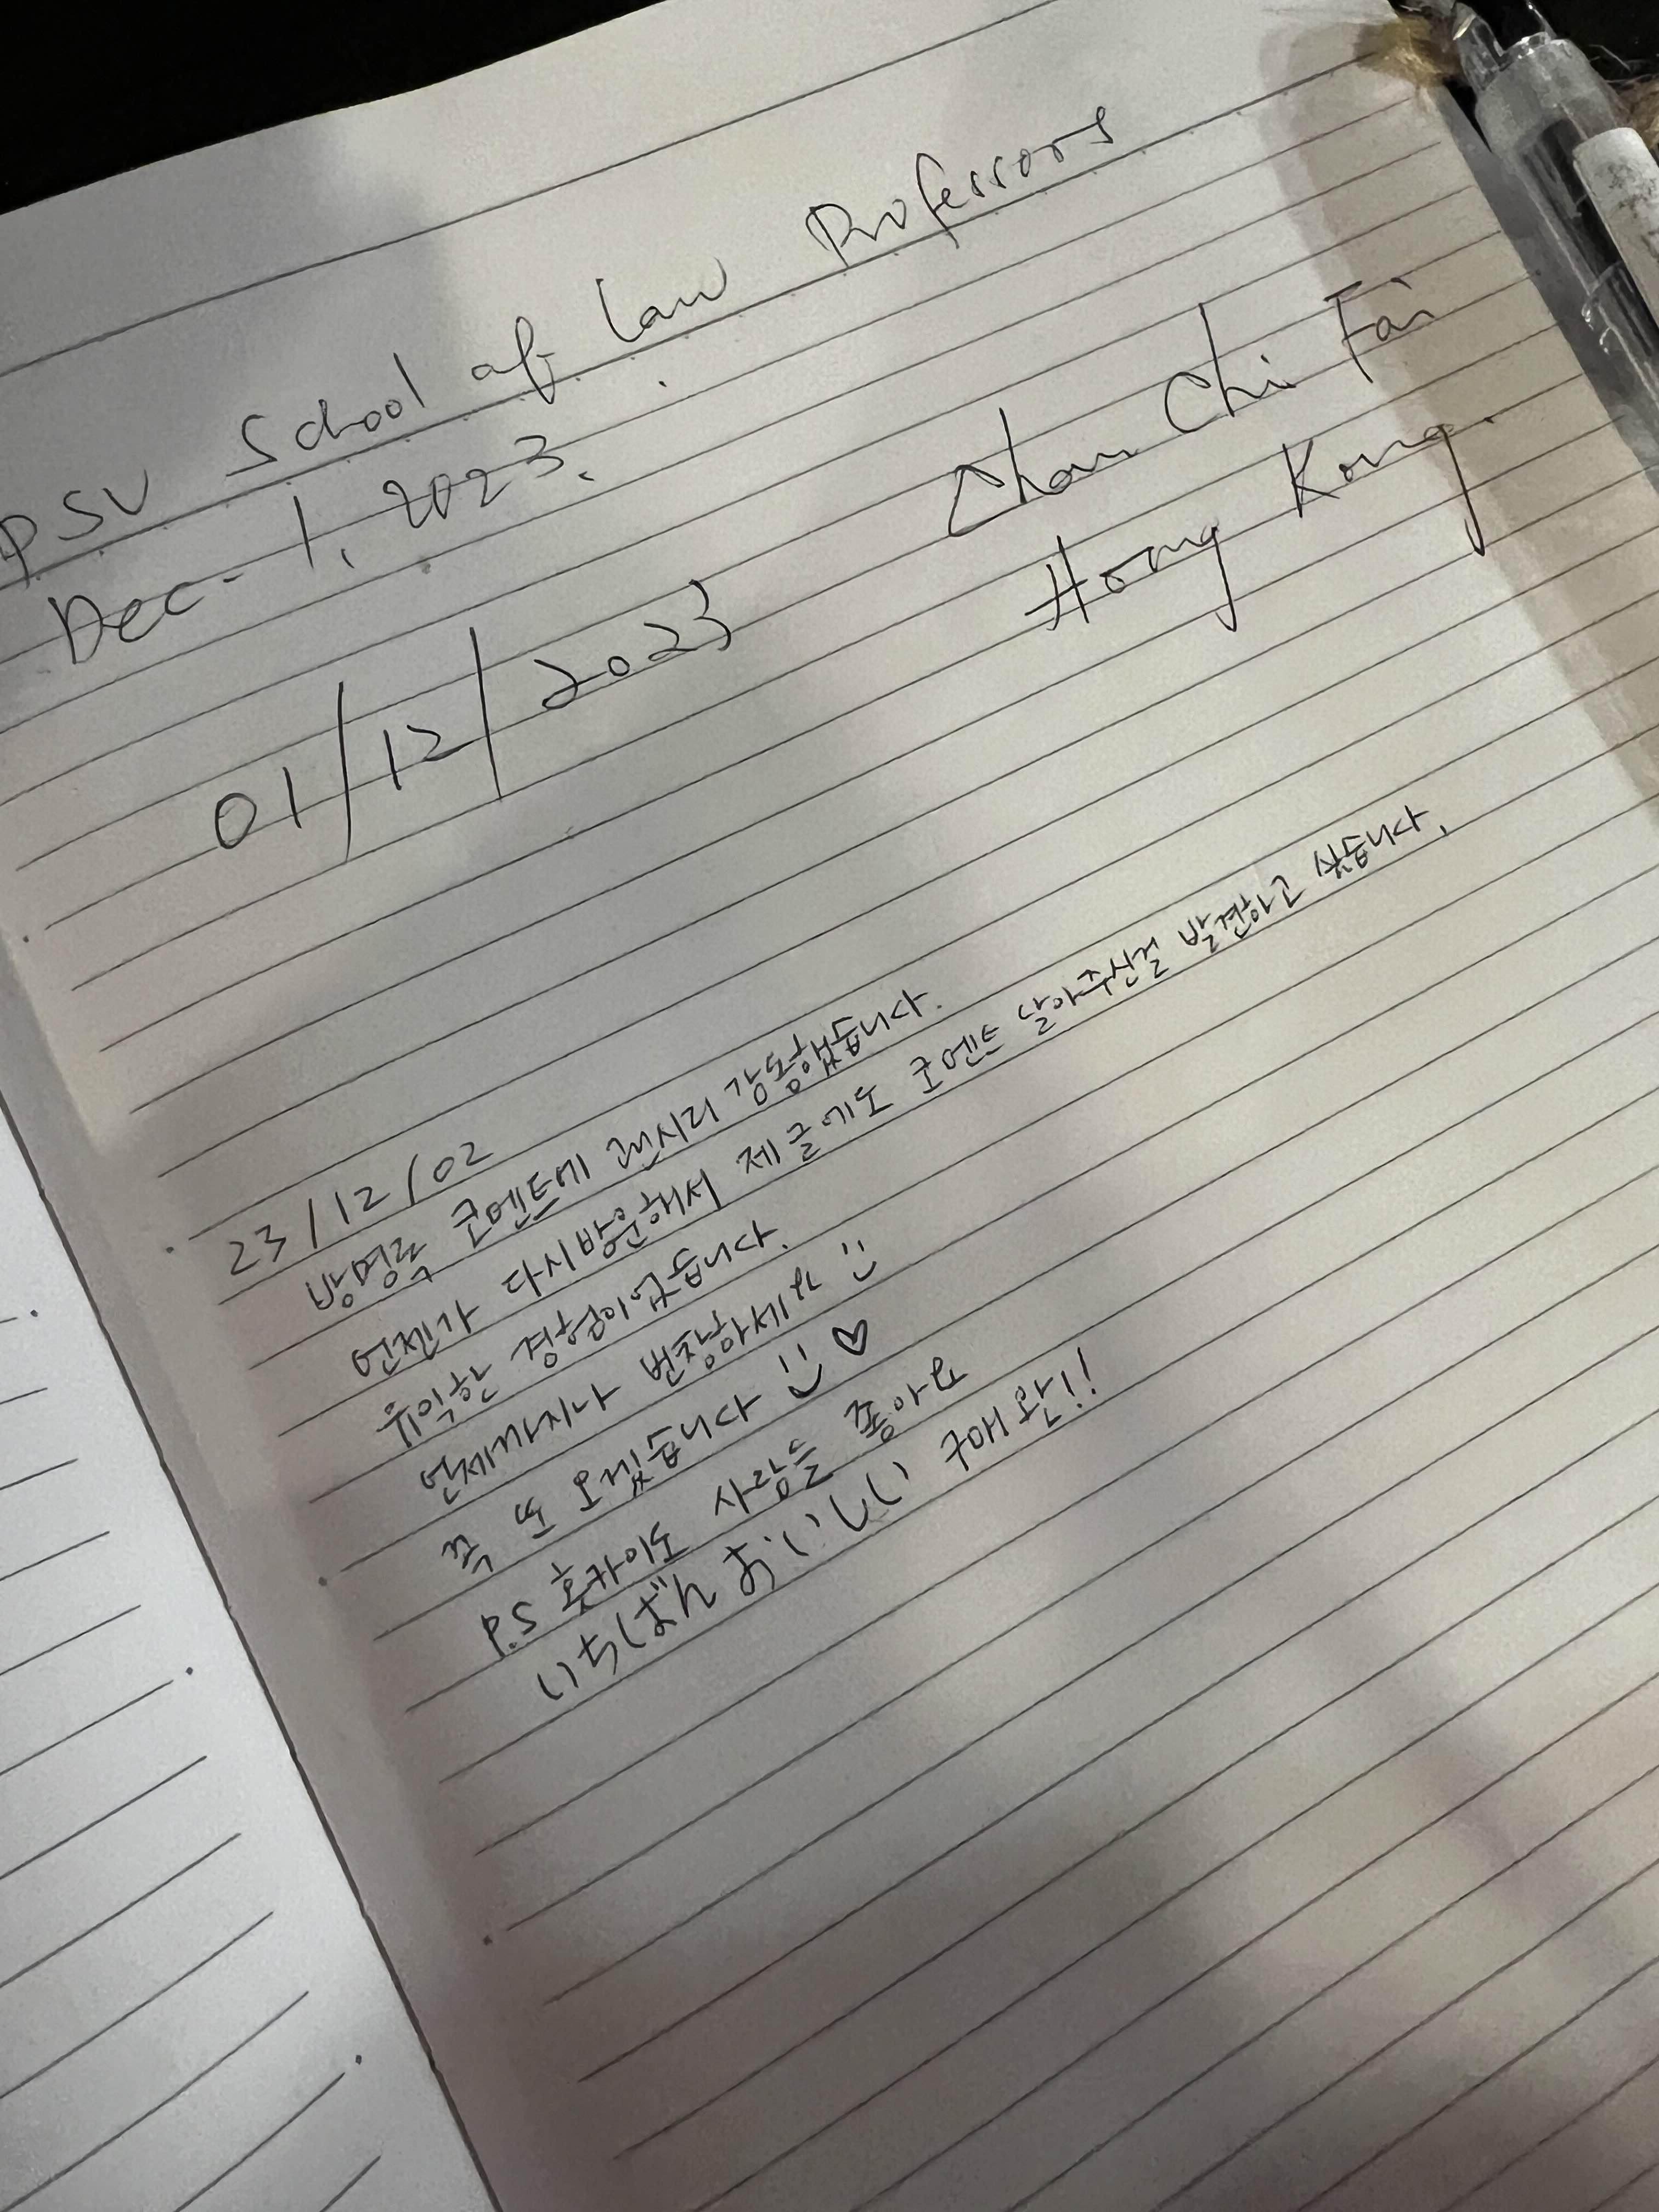 PSU School of Law Professors
Dec. 1, 2023.
Chan Chi Fai
Hong Kong.
01/12/2023
23/12/02
방명록 코멘트에 괜시리 감동했습니다.
언젠가 다시방문해서 제글에도 코멘트 달아주신걸 발견하고 싶습니다.
유익한 경험이었습니다.
언제까지나 번창하세요 :)
꼭 또 오겠습니다 :) ♡
P.S 홋카이도 사람들 좋아요
いちばん おいしい